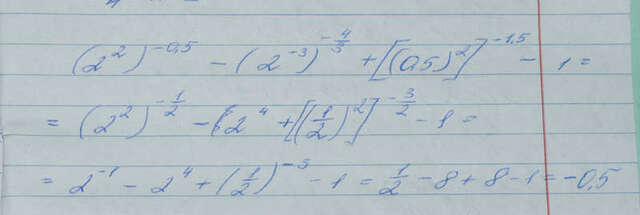 (2²)^{-0,5} - (2^{-3})^{-\frac{4}{3}} + [(0,5)²]^{-1,5} - 1 =
= (2²)^{-\frac{1}{2}} - 2⁴ + [(\frac{1}{2})²]^{-\frac{3}{2}} - 1 =
= 2^{-1} - 2⁴ + (\frac{1}{2})^{-3} - 1 = \frac{1}{2} - 8 + 8 - 1 = -0,5